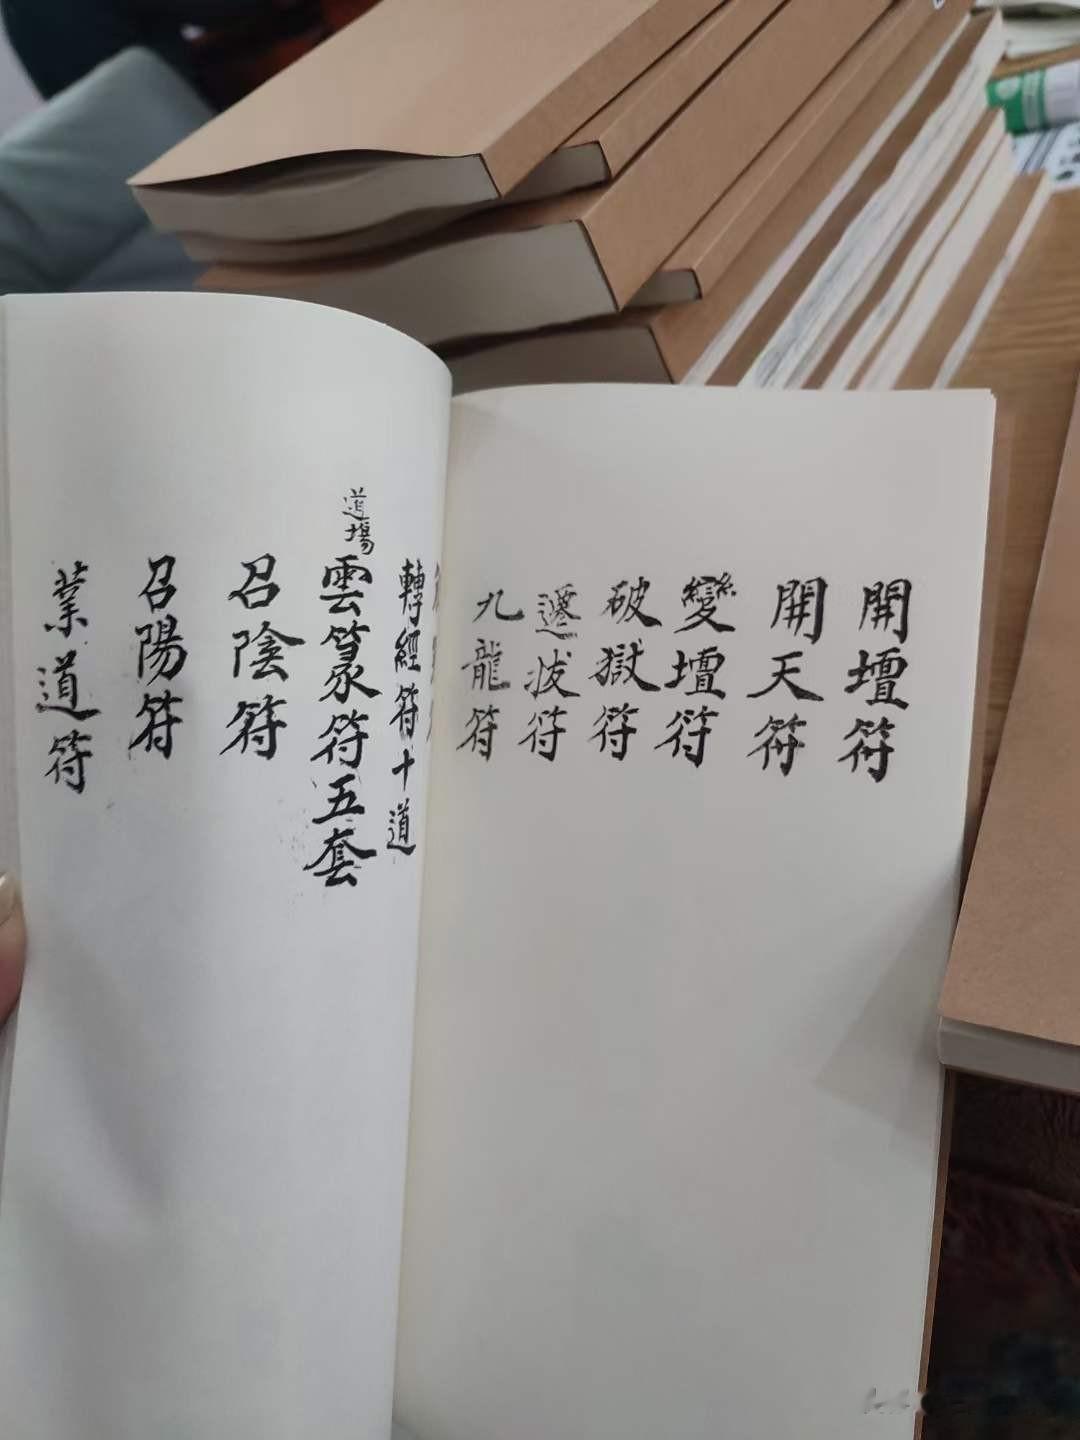 開壇符
開天符
變壇符
破獄符
遷拔符
九龍符
轉經符十道
道場
雲篆符五套
召陰符
召陽符
業道符